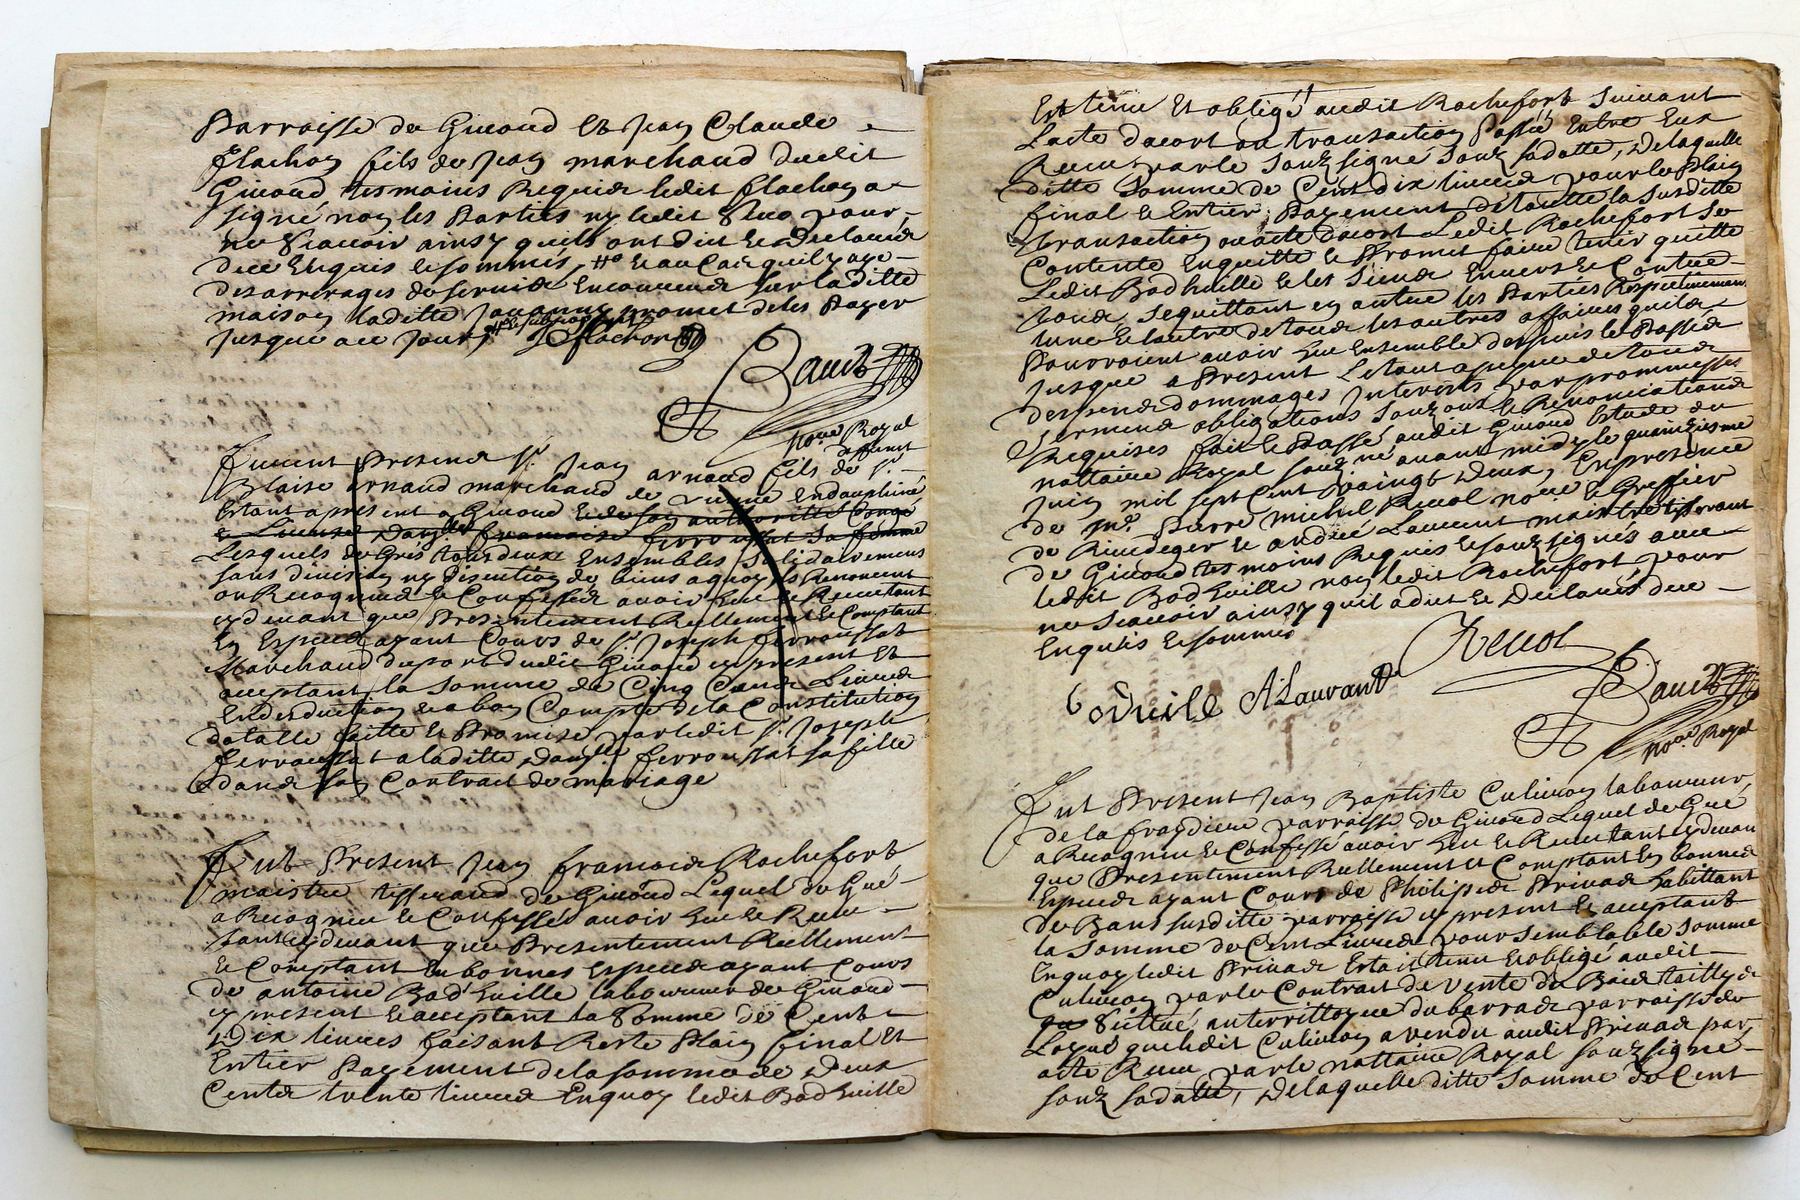 Parroisse de Giraud Et Jean Claude
flachon fils de Jean marchand dudit
Giraud tesmoins Requier ledit flachon a
signé non les Parties ny ledit pour
ne Scavoir ainsy quils ont dit et Declairé
dece Enquis et sommis, et au Cas quil y aye
des arrerages de servis Encourus sur laditte
maison laditte promet deles Payer
Jusque a ce Jour flachon
nore Royal
Jean arnaud fils de Sr
deffunt
Blaise arnaud marchand de Vienne En dauphiné
Estant a present a Giraud et de son authorité Congé
et Licence Damlle francoise ferroussat sa femme
Lesquels de Gré tous deux Ensembles Solidairement
sans division ny discution de biens a quoy ils Renoncent
on Recogneu et Confessé avoir heu et Receu tant
cydevant que Presentement Reellement et Comptant
En Especes ayant Cours de Sr Joseph ferroussat
Marchand du port dudit Giraud cy present Et
acceptant la Somme de Cinq Cents Livres
En desduction et a bon Compte de la Constitution
dotalle faitte et Promise par ledit Sr Joseph
ferroussat a laditte Damlle ferroussat sa fille
dans son Contrait de mariage
fut Present Jean francois Rochefort
maistre tisserand de Giraud Lequel de Gré
a Recogneu et Confessé avoir heu et Receu
tant cydevant que Presentement Reellement
et Comptant En bonnes Especes ayant Cours
de antoine Bad'huille laboureur de Giraud
cy present et acceptant la Somme de Cent
Dix livres faisant Reste Plain final Et
Entier Payement de la somme de Deux
Cents trente livres Enquoy ledit Bad huille
Est tenu Et obligé audit Rochefort Suivant
Lacte dacort ou transaction Passé Entre Eux
Receu par le Souz signé Souz sa datte, De laquelle
ditte Somme de Cent dix livres pour le Plain
final et Entier Payement de toutte la Susditte
transaction ou acte dacort Ledit Rochefort Se
Contente Enquitte et Promet faire tenir quitte
Ledit Badhuille et les Siens Envers et Contre
tous Sequittant en outre les Parties Respectivement
lune et lautre de tous les autres affaires quils
Pourroient avoir heu Ensemble despuis le Passé
Jusque a Present Le tout a peyne de tous
despens dommages Interets par prommesses
Serments obligations Souzmis et Renonciations
Requises fait et Passé audit Giraud Estude du
nottaire Royal souzsigné avant midy le quinziesme
Juin mil sept Cent Vaingt Deux, En presence
de Me Pierre michel Revol nore et Greffier
de Rivedeger et andré Laurent maistre tisserant
de Giraud tesmoins Requis et souz signés avec
ledit Badhuille non ledit Rochefort pour
ne Scavoir ainsy quil a dit et Declairé dece
Enquis et sommé
Revol
bodvile A Lauvant
nore Royal
fut Present Jean Baptiste laboureur
de la parroisse de Giraud Lequel de Gré
a Recogneu et Confessé avoir heu et Receu tant cydevan
que Presentement Reellement et Comptant En bonnes
Especes ayant Cours de Philippe Privas habittant
de Bans susditte parroisse cy present et acceptant
la Somme de Cent Livres pour Semblable Somme
Enquoy ledit Privas Estait tenu Et obligé audit
par le Contrait de Vente de Bois taillis
Scittué au territtoire du barras parroisse de
quledit a vendu audit Privas par
acte Receu par le nottaire Royal souzsigné
souz sa datte, De laquelle ditte Somme de Cent